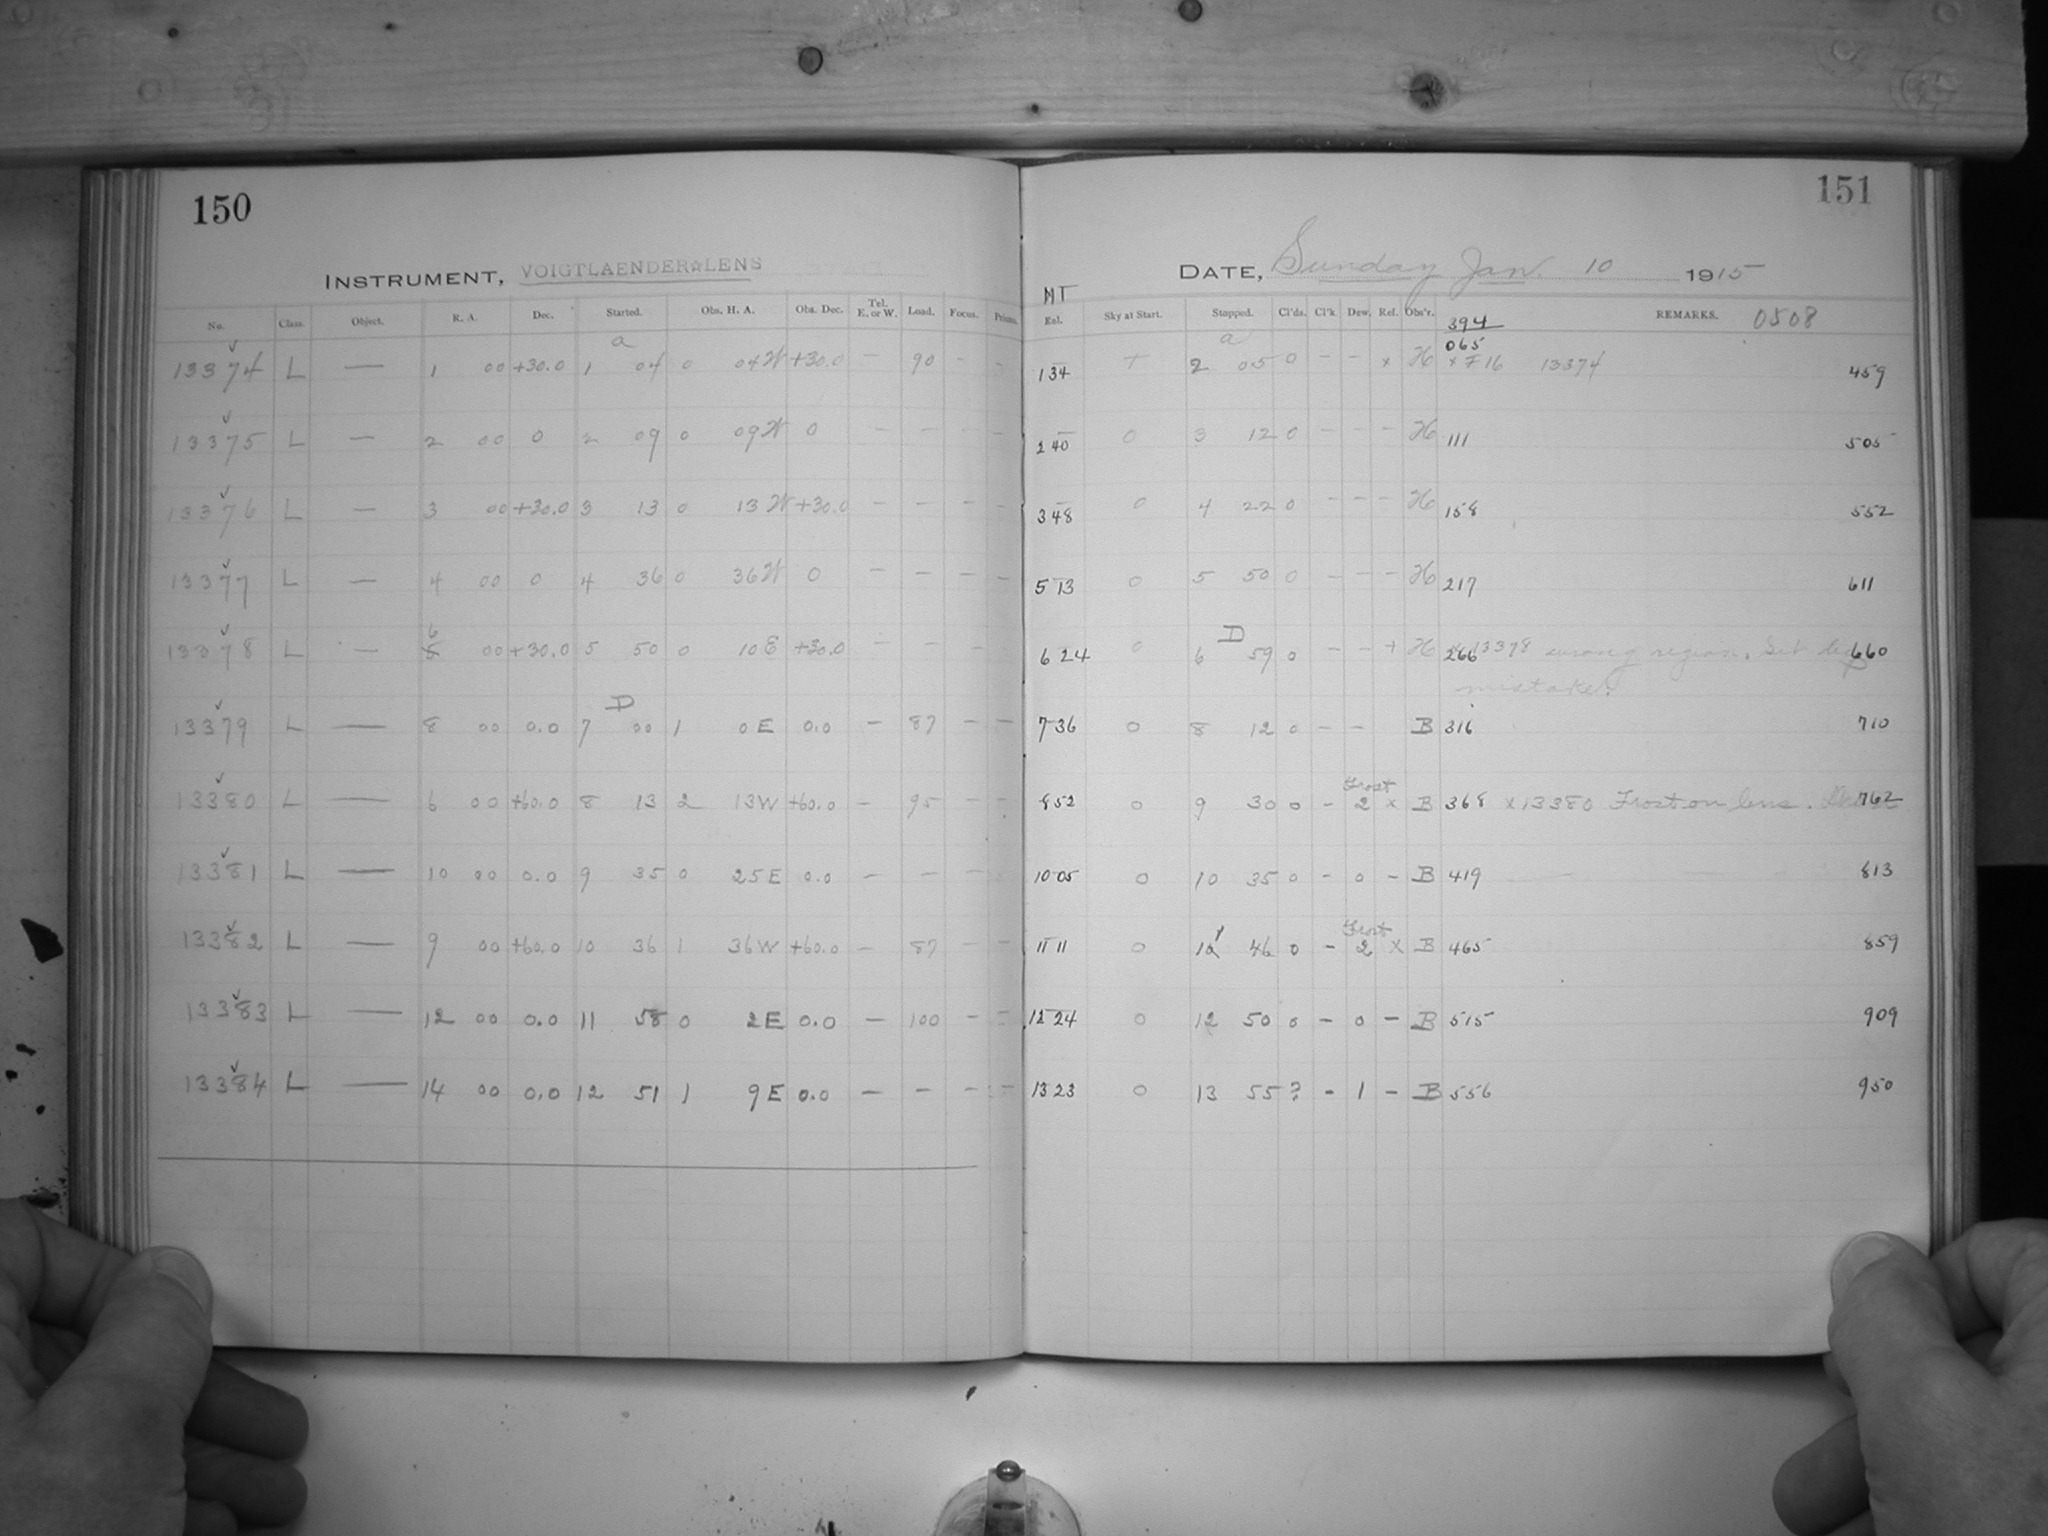 150
151
INSTRUMENT, VOIGTLAENDER☆LENS
DATE, Sunday Jan. 10 1915
No. Class. Object. R. A. Dec. Started. Obs. H. A. Obs. Dec. Tel. E. or W. Load. Focus. Prisms. MT Eol. Sky at Start. Stopped. Cl'ds. Cl'k Dew. Ref. Obs'r. 394 REMARKS. 0508
a a 065
13374 L — 1 00 +30.0 1 04 0 04 W +30.0 — 90 - - 134 + 2 05 0 - - x H x F16 13374 459
13375 L — 2 00 0 2 09 0 09 W 0 - - - - 240 0 3 12 0 - - - H 111 505
13376 L — 3 00 +30.0 3 13 0 13 W +30.0 - - - - 348 0 4 22 0 - - - H 158 552
13377 L — 4 00 0 4 36 0 36 W 0 - - - - 513 0 5 50 0 - - - H 217 611
6 D
13378 L — 5 00 +30.0 5 50 0 10 E +30.0 - - - 624 0 6 59 0 - - + H 266 13378 wrong region. Set by 660
mistake.
D
13379 L — 8 00 0.0 7 00 1 0 E 0.0 - 87 - - 736 0 8 12 0 - - B 316 710
Frost
13380 L — 6 00 +60.0 8 13 2 13 W +60.0 - 95 - - 852 0 9 30 0 - 2 x B 368 x 13380 Frost on lens. 762
13381 L — 10 00 0.0 9 35 0 25 E 0.0 - - - - 1005 0 10 35 0 - 0 - B 419 813
Frost
13382 L — 9 00 +60.0 10 36 1 36 W +60.0 - 87 - - 11 11 0 46 0 - 2 x B 465 859
13383 L — 12 00 0.0 11 58 0 2 E 0.0 - 100 - - 12 24 0 12 50 0 - 0 - B 515 909
13384 L — 14 00 0.0 12 51 1 9 E 0.0 - - - - 13 23 0 13 55 ? - 1 - B 556 950